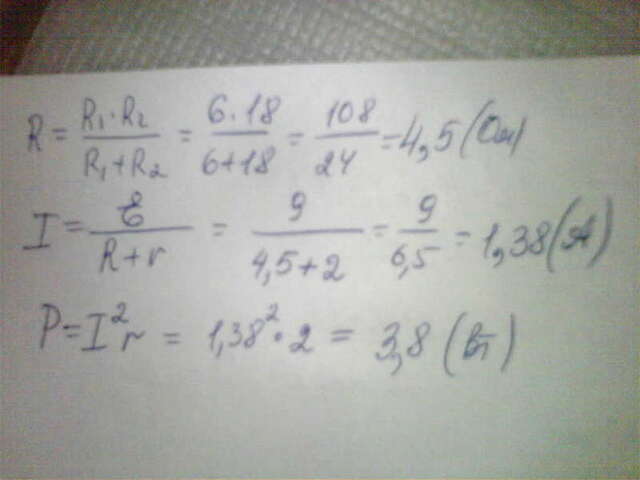 R = R₁·R₂ / R₁+R₂ = 6·18 / 6+18 = 108 / 24 = 4,5 (Ом)
I = Ɛ / R+r = 9 / 4,5+2 = 9 / 6,5 = 1,38 (А)
P = I² r = 1,38² · 2 = 3,8 (Вт)